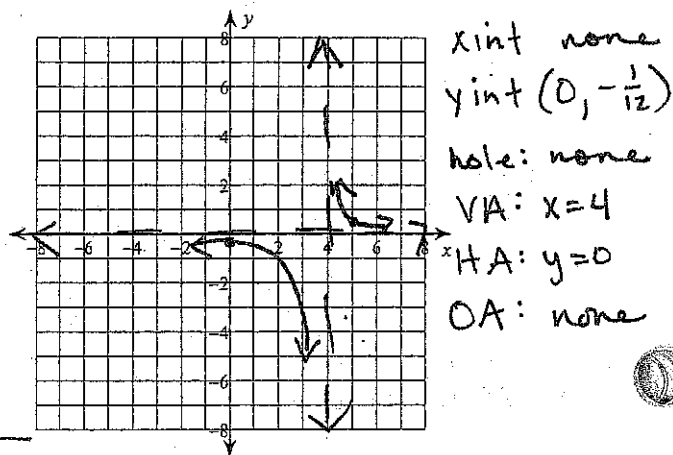 y
8
6
4
2
-8 -6 -4 -2 0 2 4 6 8 x
-2
-4
-6
-8
x int none
y int (0, -1/12)
hole: none
VA: x=4
HA: y=0
OA: none